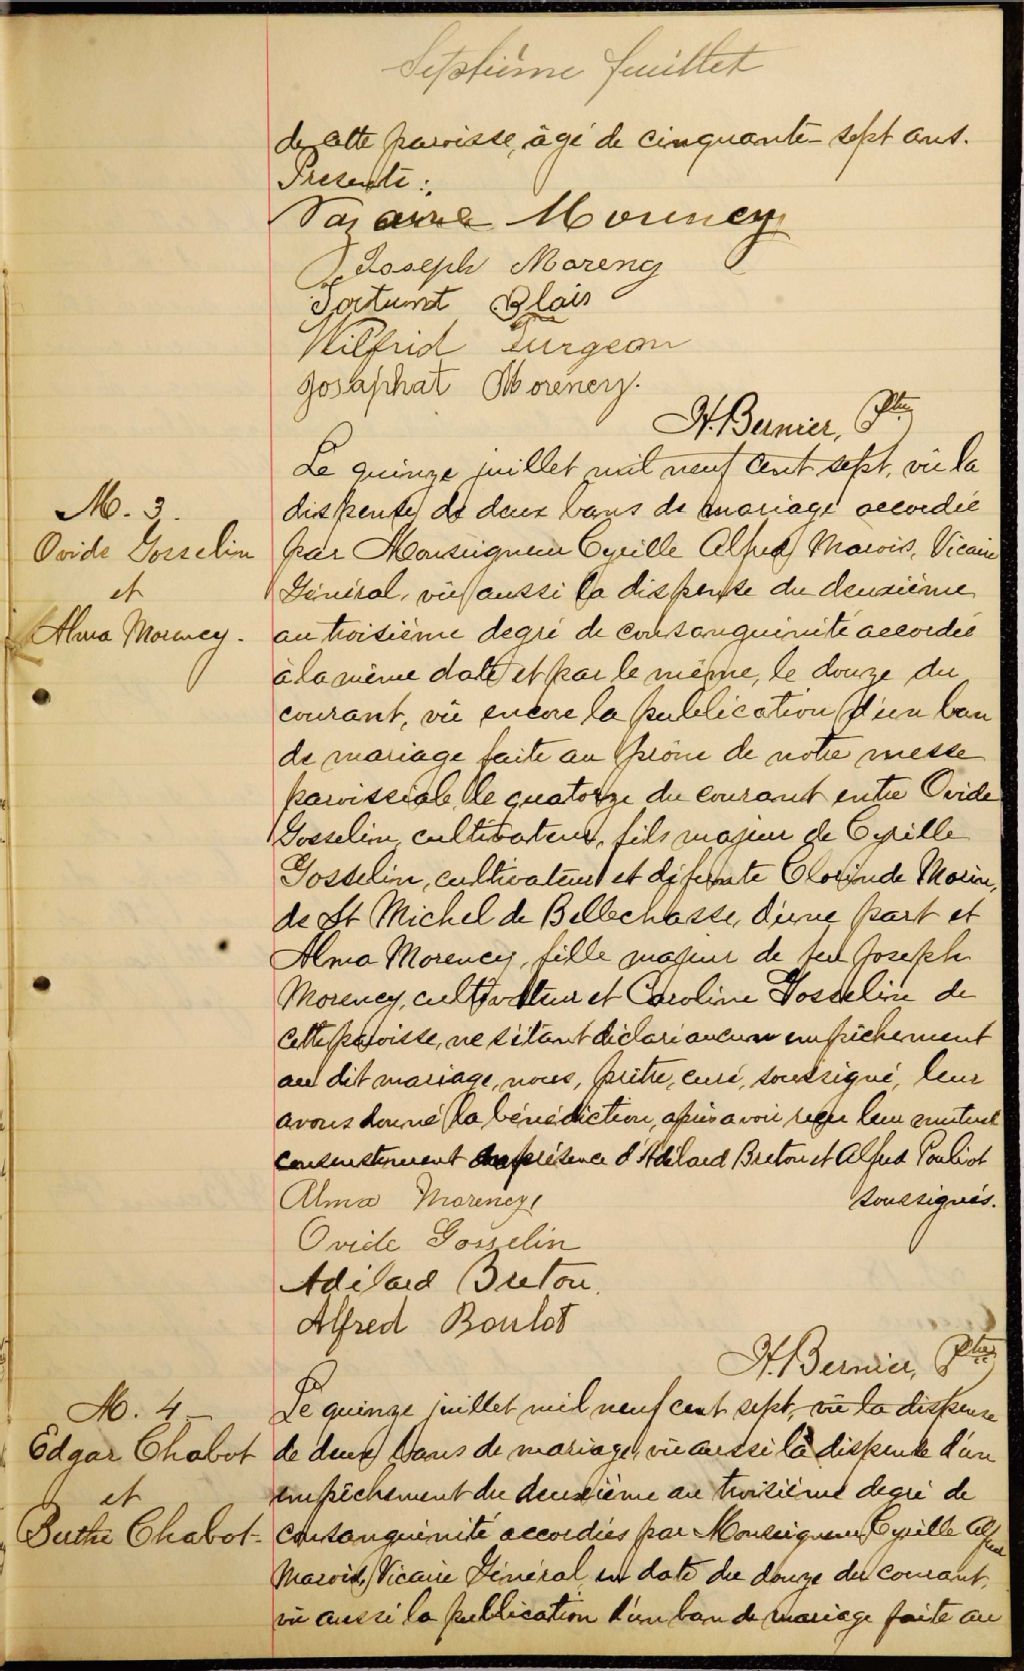 Septième feuillet
de cette paroisse, âgé de cinquante-sept ans.
Presents:
Nazaire Morency
Joseph Moreng
Fortunat Blais
Wilfrid Turgeon
Josaphat Morency.
H. Bernier, Ptre
M. 3.
Ovide Gosselin
et
Alma Morency.
Le quinze juillet mil neuf cent sept, vû la
dispense de deux bans de mariage accordée
par Monseigneur Cyrille Alfred Marois, Vicaire
Général, vû aussi la dispense du deuxième
au troisième degré de consanguinité accordée
à la même date et par le même, le douze du
courant, vû encore la publication d'un ban
de mariage faite au prône de notre messe
paroissiale le quatorze du courant entre Ovide
Gosselin, cultivateur, fils majeur de Cyrille
Gosselin, cultivateur et défunte Clorinde Morin,
de St Michel de Bellechasse, d'une part et
Alma Morency, fille majeur de feu Joseph
Morency, cultivateur et Caroline Gosselin de
cette paroisse, ne s'étant déclaré aucun empêchement
au dit mariage, nous, prêtre, curé, soussigné, leur
avons donné la bénédiction, après avoir reçu leur mutuel
consentement en présence d'Adélard Breton et Alfred Pouliot
soussignés.
Alma Morency,
Ovide Gosselin
Adélard Breton.
Alfred Boulot
H. Bernier, Ptre
M. 4
Edgar Chabot
et
Berthe Chabot
Le quinze juillet mil neuf cent sept, vû la dispense
de deux bans de mariage, vû aussi la dispense d'un
empêchement du deuxième au troisième degré de
consanguinité accordées par Monseigneur Cyrille Alfred
Marois, Vicaire Général, en date du douze du courant,
vû aussi la publication d'un ban de mariage faite au